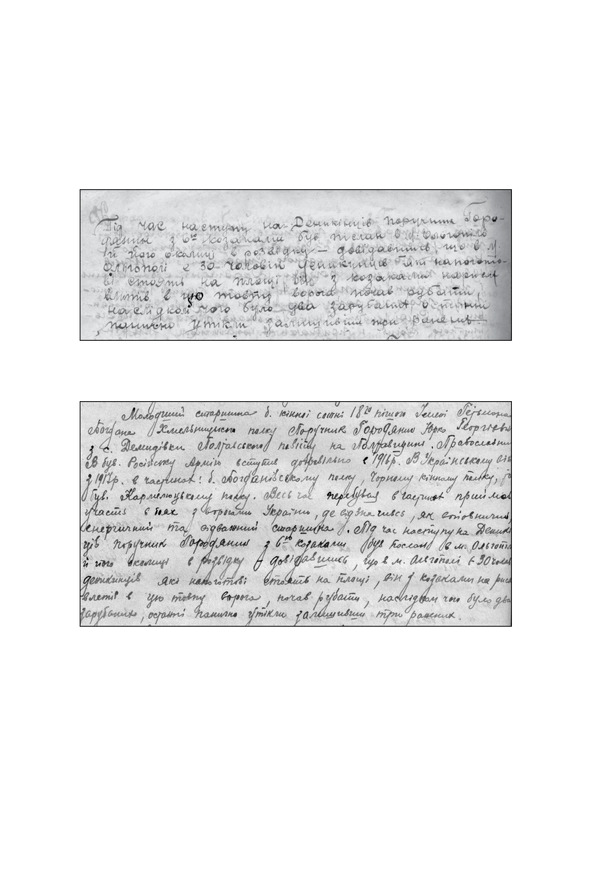 Під час наступу на Деникінців поручник Горо-
дянин з 6ю козаками був посланий в м. Ольгопіль
й його околиці в розвідку — довідавшись, що в м.
Ольгополі є 30 чоловік
ві стоять на площі він з козаками
в цю товпу ворога почав рубати,
наслідком чого було два зарубаних, останні
панічно утікли залишивши три ранених.
Молодший старшина б. кінної сотні 18го пішого Гетьмана
Богдана Хмельницького полку Поручник Городянин Юрко
з с. Демидівки Полтавського повіту на Полтавщині. Православний
В був. Російську Армію вступив добровільно в 1916р. В Українському
з 1917р. в частинах: б. Богданівському полку, Чорному кінному полку,
був. Кармелюцькому полку. Весь час перебував в частині приймав
участь в боях з ворогами України, де відзначився, як
енергичний та відважний старшина. Під час наступу на Деникін-
ців поручник Городянин з 6ю козаками був посланий в м. Ольгопіль
й його околиці в розвідку й довідавшись, що в м. Ольгополі є 30 чолов.
деникинців які наготові стоять на площі, він з козаками на рисях
влетів в цю товпу ворога, почав рубати, наслідком чого було два
зарубаних, останні панічно утікли залишивши три ранених.